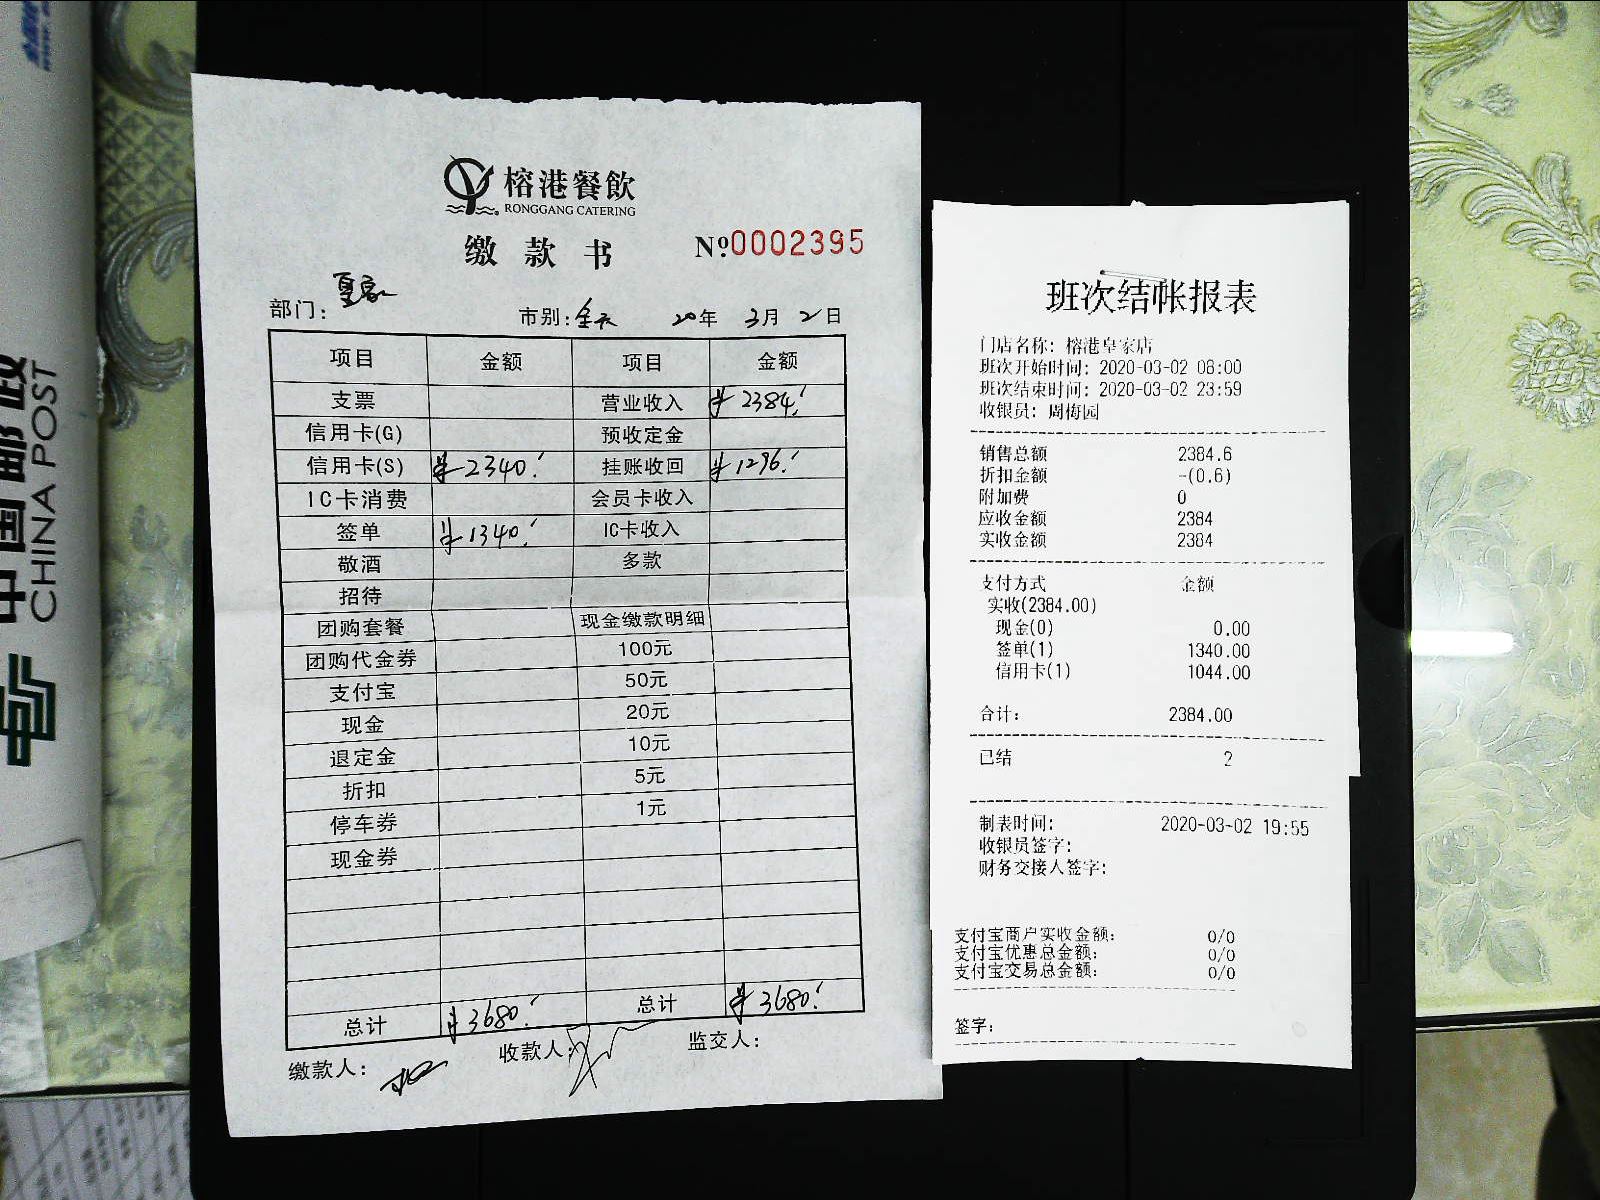 中国邮政
CHINA POST
榕港餐飲
RONGGANG CATERING
缴款书
№0002395
部门: 皇家
市别: 全天 20年 3月 2日
项目 金额 项目 金额
支票 营业收入 ¥2384.
信用卡(G) 预收定金
信用卡(S) ¥2340. 挂账收回 ¥1296.
IC卡消费 会员卡收入
签单 ¥1340. IC卡收入
敬酒 多款
招待
团购套餐 现金缴款明细
团购代金券 100元
支付宝 50元
现金 20元
退定金 10元
折扣 5元
停车券 1元
现金券
总计 ¥3680. 总计 ¥3680.
缴款人: 收款人: 监交人:
班次结帐报表
门店名称: 榕港皇家店
班次开始时间: 2020-03-02 06:00
班次结束时间: 2020-03-02 23:59
收银员: 周梅园
销售总额 2384.6
折扣金额 -(0.6)
附加费 0
应收金额 2384
实收金额 2384
支付方式 金额
实收(2384.00)
现金(0) 0.00
签单(1) 1340.00
信用卡(1) 1044.00
合计: 2384.00
已结 2
制表时间: 2020-03-02 19:55
收银员签字:
财务交接人签字:
支付宝商户实收金额: 0/0
支付宝优惠总金额: 0/0
支付宝交易总金额: 0/0
签字: